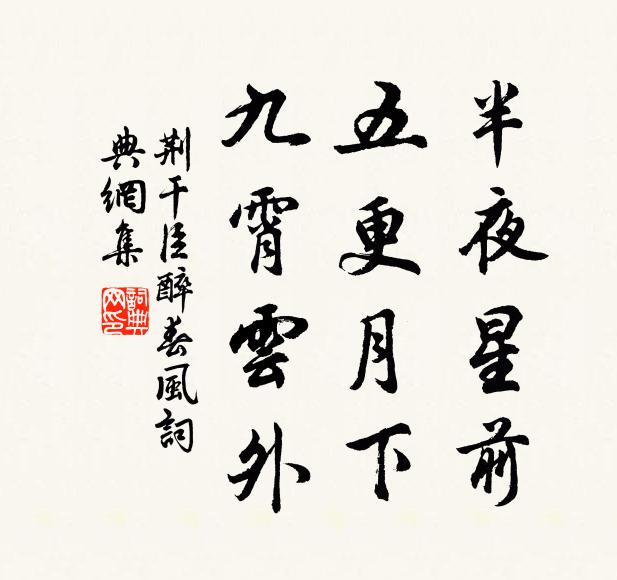 半夜星前
五更月下
九霄雲外
荆干臣醉春風詞
典網集
詞典網印